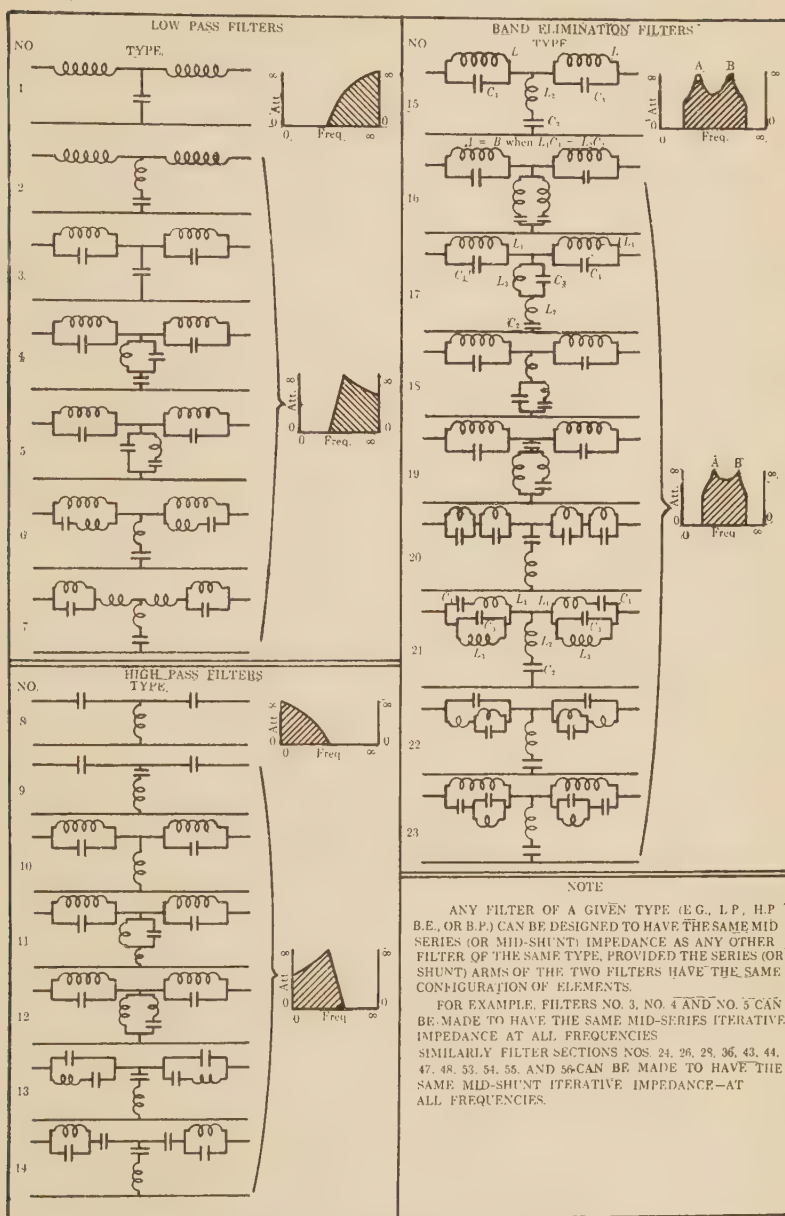 LOW PASS FILTERS
NO
TYPE.
1
Att
∞
0
0
Freq.
∞
∞
0
2
3.
4
5
6
7
Att.
∞
0
0
Freq.
∞
∞
0
HIGH PASS FILTERS
NO.
TYPE.
8
Att
∞
0
0
Freq
∞
∞
0
9
10
11
12
13
14
Att
∞
0
0
Freq
∞
∞
0
BAND ELIMINATION FILTERS
NO
TYPE
15
L
L
C₁
L₂
C₁
C₂
A B
Att
∞
0
0
Freq
∞
∞
0
A = B when L₁C₁ = L₂C₂
16
17
L₁
L₁
C₁
L₃
C₃
C₁
L₂
C₂
18
19
20
Att.
A B
∞
0
0
Freq
∞
∞
0
21
C₁
L₁
L₁
C₁
C₃
L₂
C₃
L₃
L₃
C₂
22
23
NOTE
ANY FILTER OF A GIVEN TYPE (E.G., L.P., H.P
B.E., OR B.P.) CAN BE DESIGNED TO HAVE THE SAME MID
SERIES (OR MID-SHUNT) IMPEDANCE AS ANY OTHER
FILTER OF THE SAME TYPE, PROVIDED THE SERIES (OR
SHUNT) ARMS OF THE TWO FILTERS HAVE THE SAME
CONFIGURATION OF ELEMENTS.
FOR EXAMPLE, FILTERS NO. 3, NO. 4 AND NO. 5 CAN
BE MADE TO HAVE THE SAME MID-SERIES ITERATIVE
IMPEDANCE AT ALL FREQUENCIES
SIMILARLY FILTER SECTIONS NOS. 24, 26, 28, 36, 43, 44,
47, 48, 53, 54, 55, AND 56 CAN BE MADE TO HAVE THE
SAME MID-SHUNT ITERATIVE IMPEDANCE—AT
ALL FREQUENCIES.